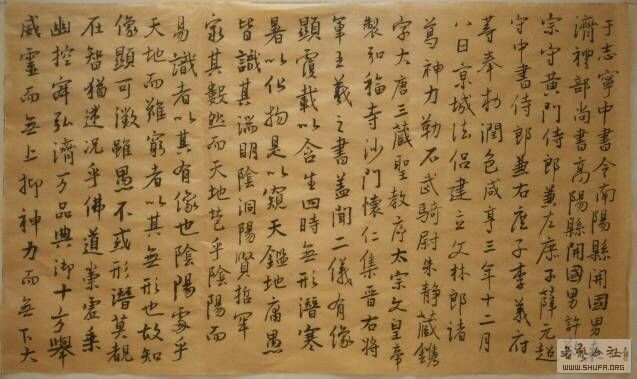 于志寧中書令南陽縣開國男
濟禮部尚書高陽縣開國男許
宗守黃門侍郎兼左庶子薛元超
守中書侍郎兼右庶子李義府
等奉勑潤色咸亨三年十二月
八日京城法侶建立文林郎諸
葛神力勒石武騎尉朱靜藏鐫
字大唐三藏聖教序太宗文皇帝
製弘福寺沙門懷仁集晉右將
軍王羲之書蓋聞二儀有像
顯覆載以含生四時無形潛寒
暑以化物是以窺天鑑地庸愚
皆識其端明陰洞陽賢哲罕
窮其數然而天地苞乎陰陽而
易識者以其有像也陰陽處乎
天地而難窮者以其無形也故知
像顯可徵雖愚不惑形潛莫覩
在智猶迷況乎佛道崇虛乘
幽控寂弘濟万品典御十方舉
威靈而無上抑神力而無下大
WWW.SHUFA.ORG